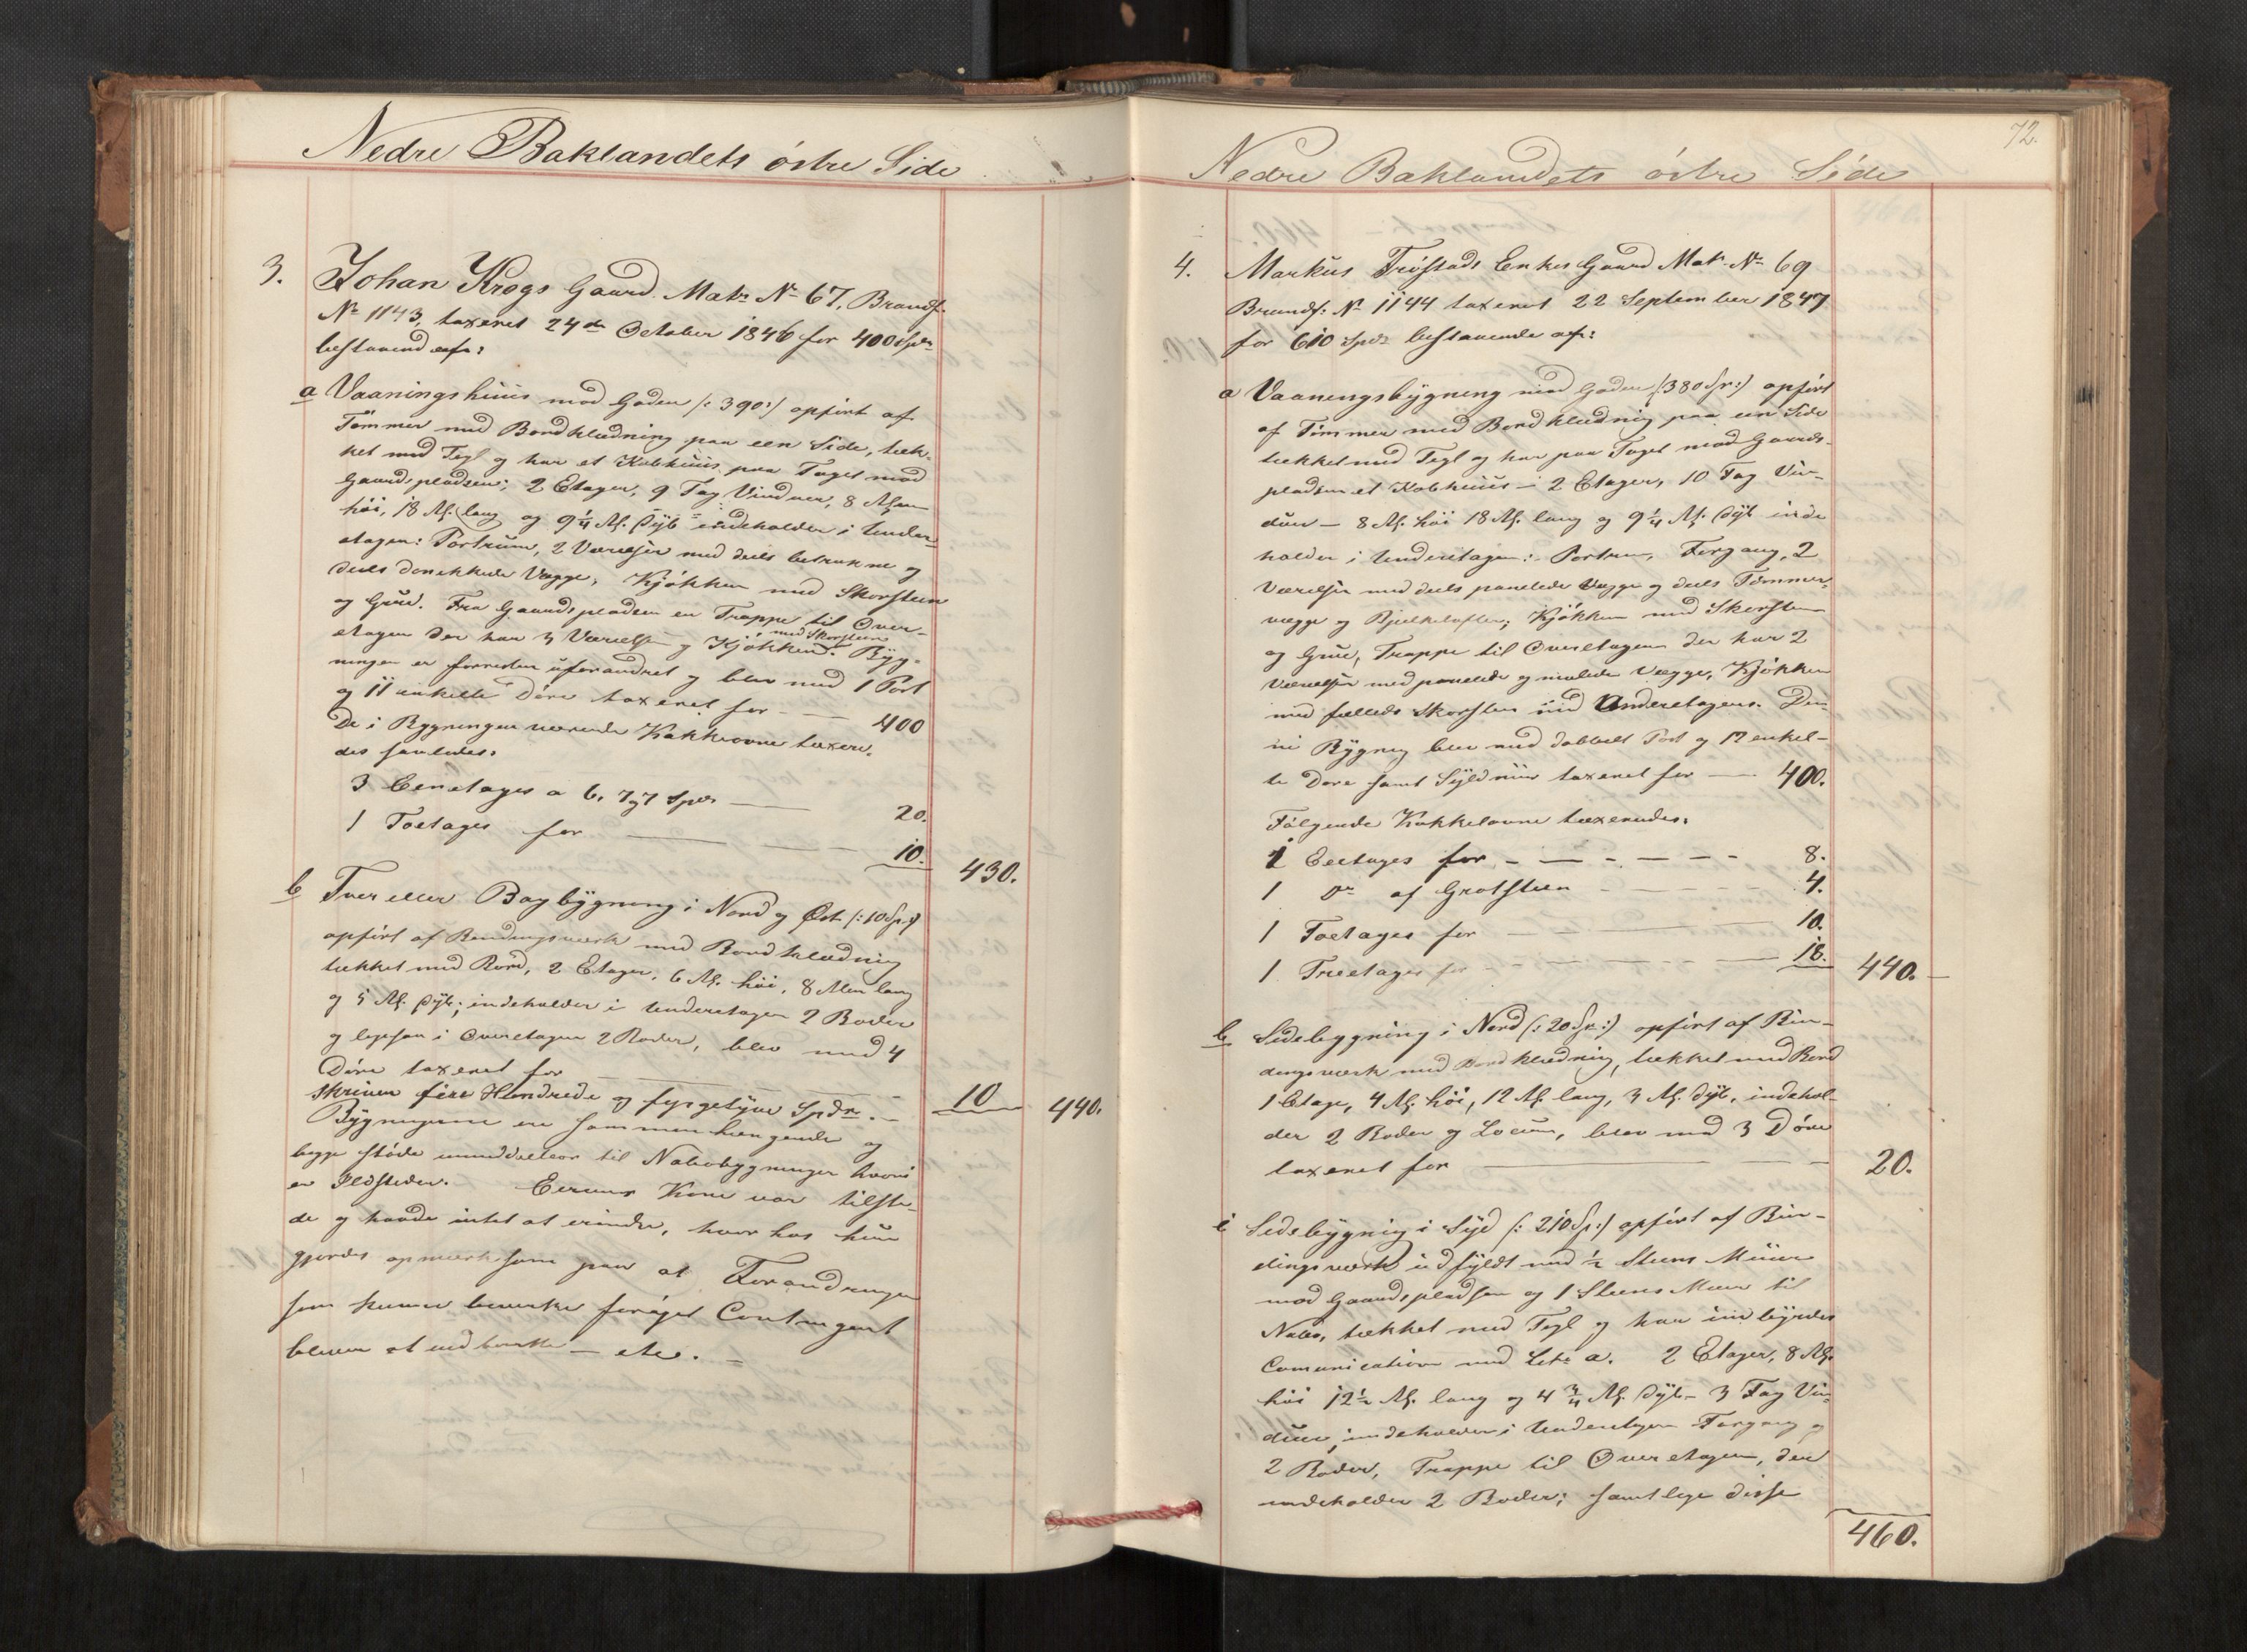 Nedre Baklandets östre Side
3. Johan Krogs Gaard. Matr. No 67. Brandf.
No 1143, taxeret 24de October 1846 for 400 Spdr
bestaaend af:
a Vaaningshuus mod Gaden /: 390 :/ opført af
Tömmer med Bordklædning paa een Side, tæk-
ket med Tegl og har et Kobhuus paa Taget mod
Gaardspladsen; 2 Etager, 9 Fag Vinduer, 8 Alen
höi, 18 Al. lang og 9 1/4 Al. dyb indeholder i Under-
etagen: Portrum, 2 Værelser med deels betrukne og
deels Vægge, Kjökken med Skorsteen
og Grue. Fra Gaardspladsen en Trappe til Over-
etagen der har 3 Værelser og Kjökken med Skorsteen. Byg-
ningen er forresten uforandret og blev med 1 Port
og 11 enkelte Döre taxeret for — 400
De i Bygningen værende Kakkelovne taxere-
des saaledes:
3 Eenetages a 6, 7 og 7 Spdr — 20.
1 Toetages for — 10. 430.
b Tver eller Bagbygning i Nord og Öst /: 10 Sp :/
opført af Bindingsværk med Bordklædning
tækket med Bord, 2 Etager, 6 Al. höi, 8 Alen lang
og 5 Al. dyb; indeholder i Underetagen 2 Boder
og ligesaa i Overetagen 2 Boder, blev med 4
Döre taxeret for — 10 440.
skriver fire Hundrede og fyrgetyve Spdr. —
Bygningerne ere sammenhængende og
begge støde umiddelbar til Nabobygninger hvori
er Ildsteder. Eierens Kone var tilste-
de og havde intet at erindre, hvorhos hun
gjordes opmærksom paa at Forandringer
som kunne bevirke foröget Contingent
bliver at indberette — etc. —
72.
Nedre Baklandets östre Side
4. Markus Tröstads Enkes Gaard Matr. No 69
Brandf. No 1144 taxeret 22 September 1847
for 610 Spdr bestaaende af:
a Vaaningsbygning mod Gaden /: 380 Sp :/ opført
af Tömmer med Bordklædning paa een Side
tækket med Tegl og har paa Taget mod Gaards-
pladsen et Kobhuus — 2 Etager, 10 Fag Vin-
duer — 8 Al. höi 18 Al. lang og 9 1/4 Al. dyb inde
holder i Underetagen: Portrum, Forgang, 2
Værelser med deels panelede Vægge og deels Tömmer-
vægge og Bjelkelofter; Kjökken med Skorsteen
og Grue, Trappe til Overetagen der har 2
Værelser med panelede og malede Vægge, Kjökken
med fælleds Skorsteen med Underetagens. Den-
ne Bygning blev med dobbelt Port og 12 enkel-
te Döre samt Syldmuur taxeret for — 400.
Fölgende Kakkelovne taxeredes:
1 Eetages for — 8.
1 Do af Grotsteen — 4.
1 Toetages for — 10.
1 Treetages for — 18. 440.
b Sidebygning i Nord /: 20 Sp :/ opført af Bin-
dingsværk med Bordklædning, tækket med Bord
1 Etage, 4 Al. höi, 12 Al. lang, 3 Al. dyb, indehol-
der 2 Boder og Locum, blev med 3 Döre
taxeret for — 20.
c Sidebygning i Syd /: 210 Sp :/ opført af Bin-
dingsværk udfyldt med 1/2 Steens Muur
mod Gaardspladsen og 1 Steens Muur til
Nabo, tækket med Tegl og har indbyrdes
Comunication med Litr a. 2 Etager, 8 Al.
höi 12 1/2 Al. lang og 4 3/4 Al. dyb — 3 Fag Vin-
duer, indeholder i Underetagen Forgang og
2 Boder, Trappe til Overetagen, der
indeholder 2 Boder; samtlige disse
460.